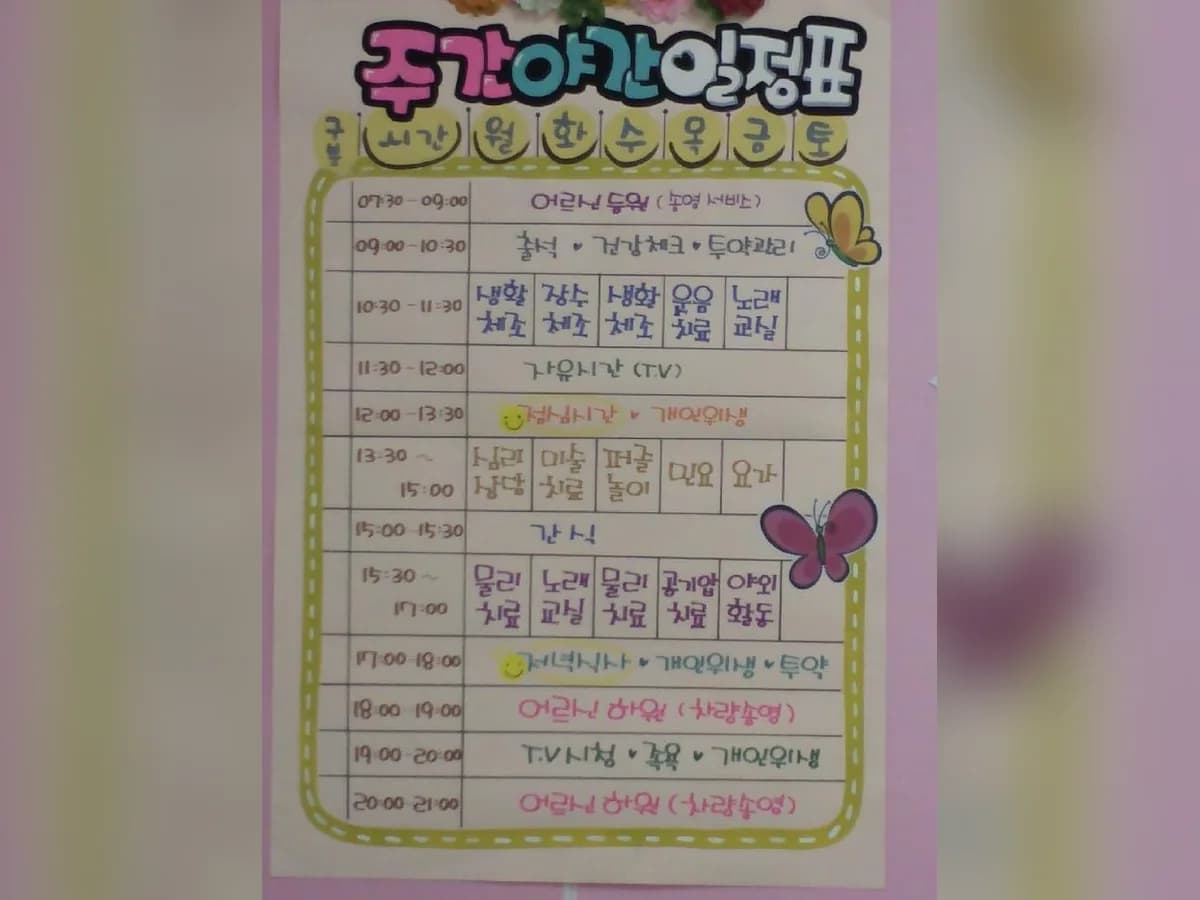 주간야간일정표
구분 시간 월 화 수 목 금 토
07:30 - 09:00 어르신 등원 (송영 서비스)
09:00 - 10:30 출석 ♥ 건강체크 ♥ 투약관리
10:30 - 11:30 생활체조 장수체조 생활체조 웃음치료 노래교실
11:30 - 12:00 자유시간 (T.V)
12:00 - 13:30 점심시간 ♥ 개인위생
13:30 ~ 15:00 심리상담 미술치료 퍼즐놀이 민요 요가
15:00 - 15:30 간식
15:30 ~ 17:00 물리치료 노래교실 물리치료 공기압치료 야외활동
17:00 - 18:00 저녁식사 ♥ 개인위생 ♥ 투약
18:00 - 19:00 어르신 하원 (차량송영)
19:00 - 20:00 T.V시청 ♥ 족욕 ♥ 개인위생
20:00 - 21:00 어르신 하원 (차량송영)